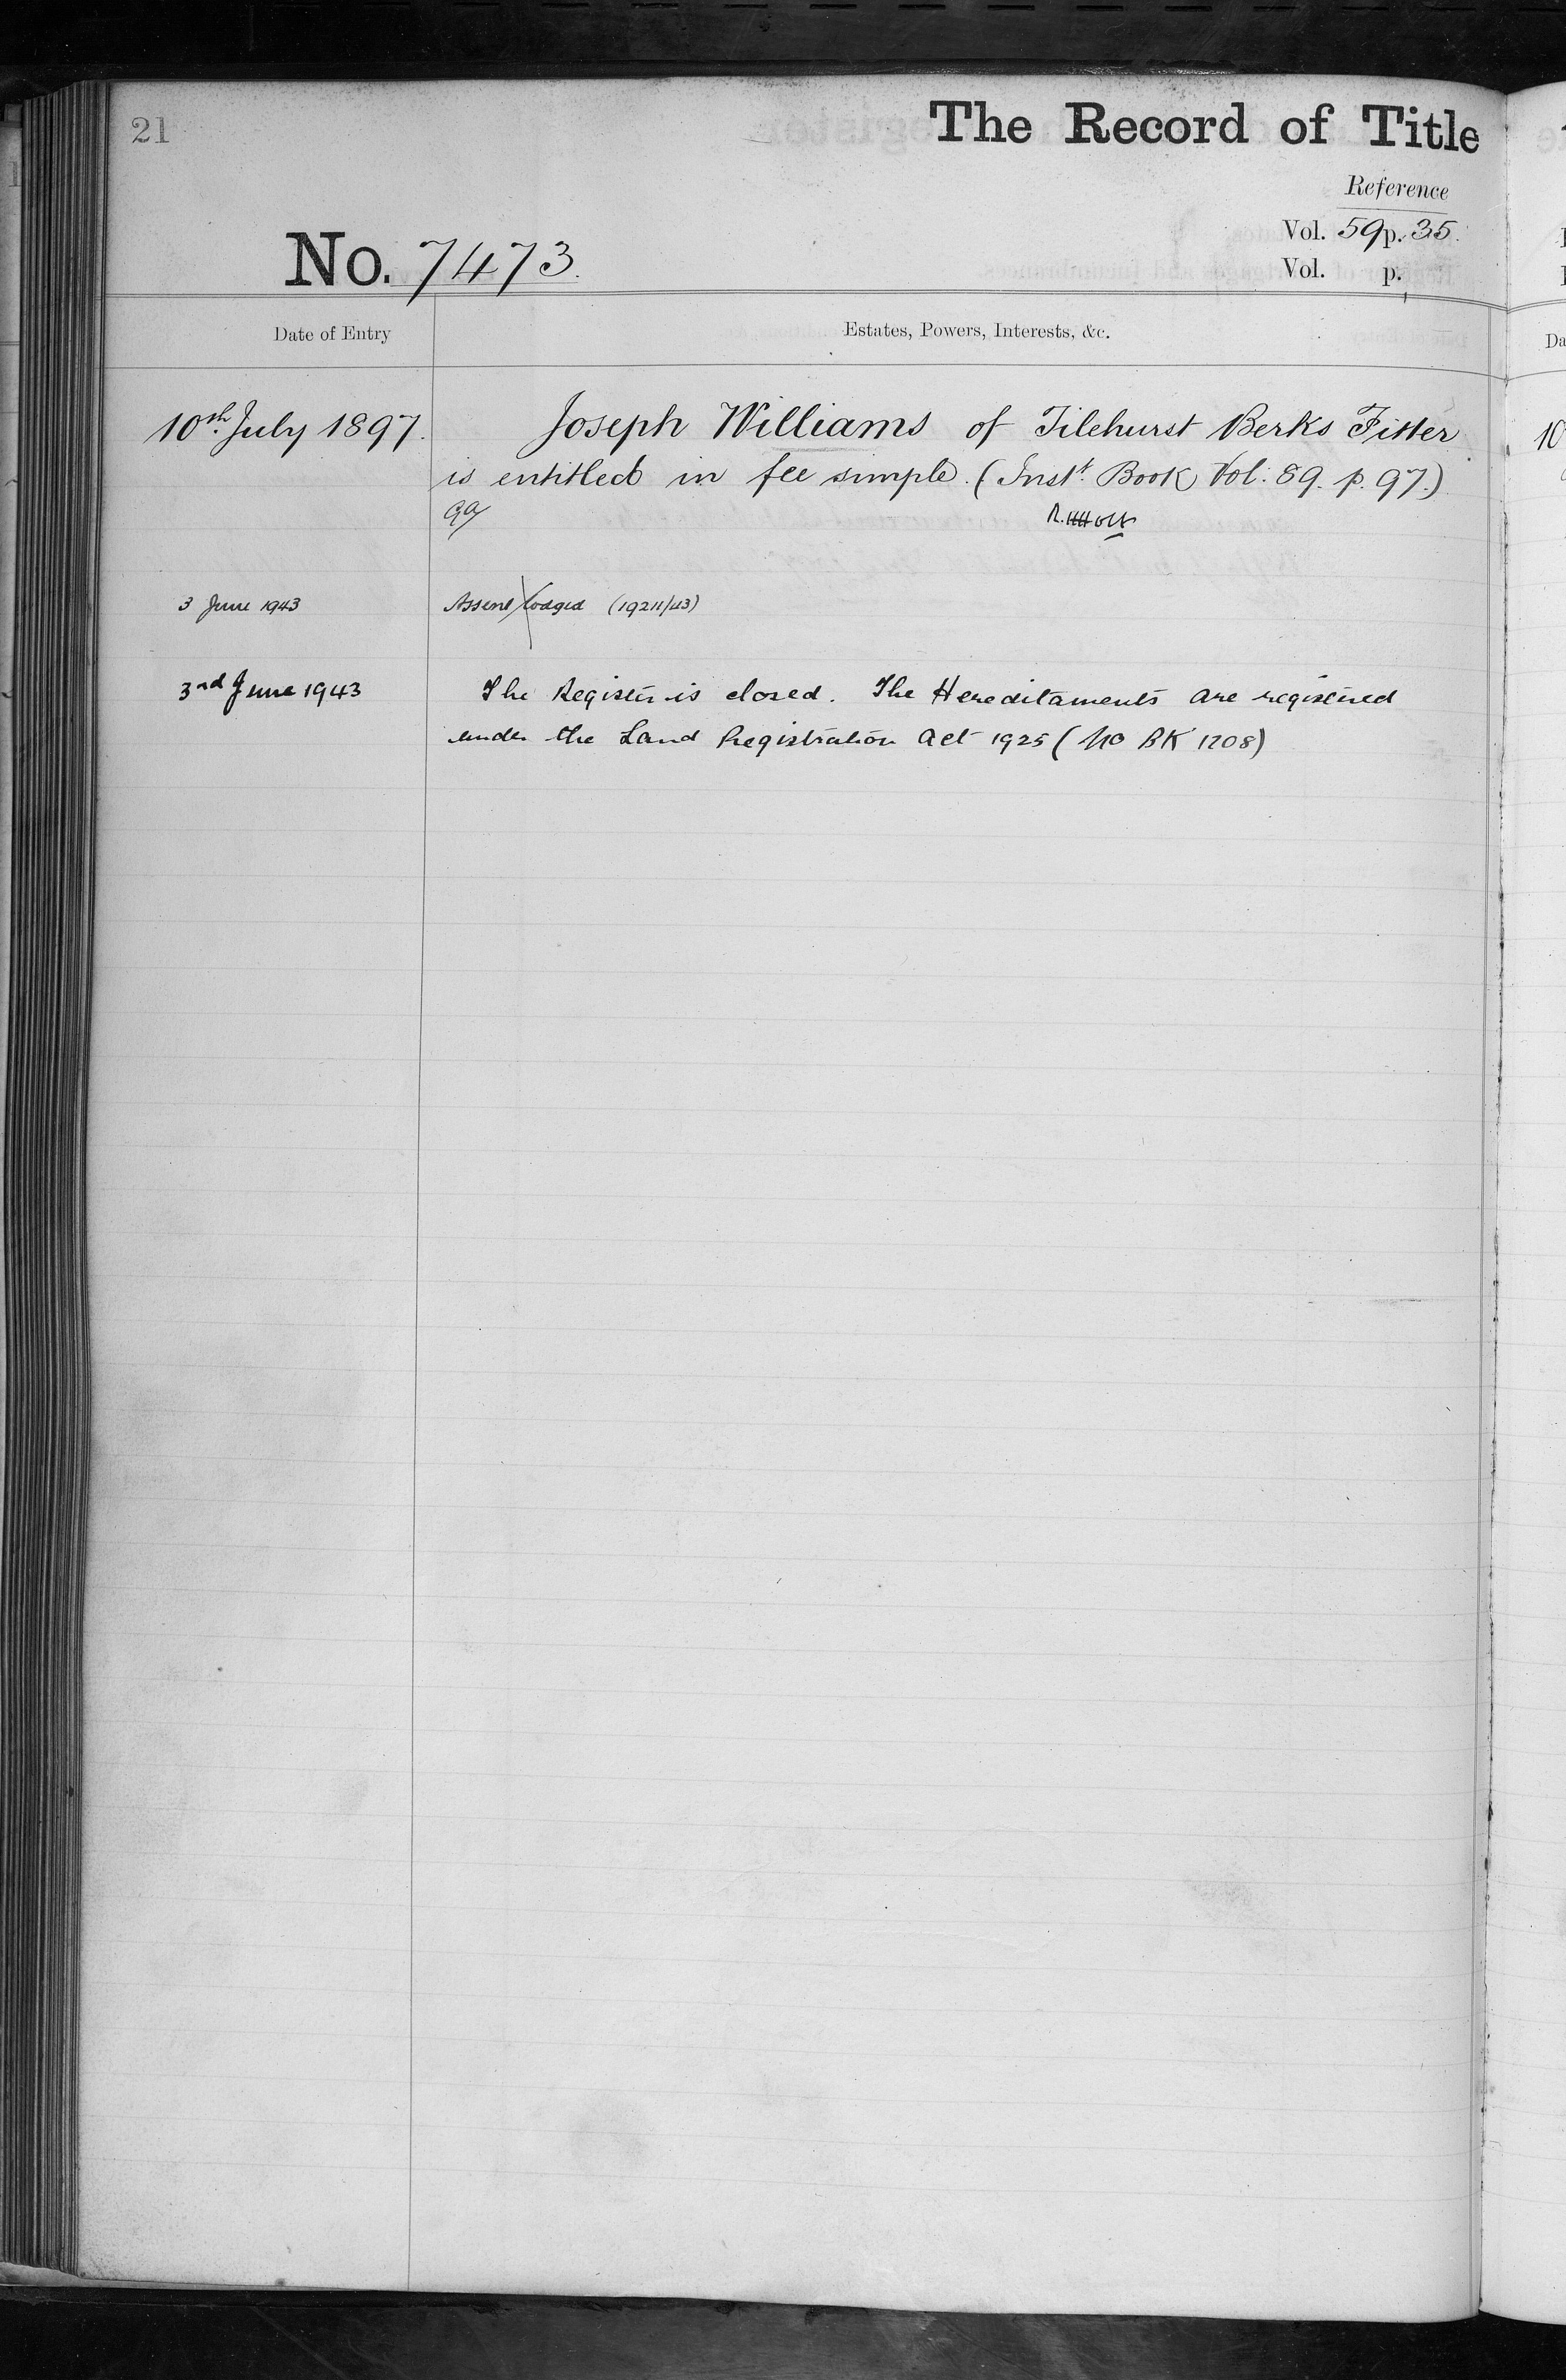 21
The Record of Title
Reference
Vol. 59 p. 35.
No. 7473.
Vol. p.
Date of Entry
Estates, Powers, Interests, &c.
10th July 1897.
Joseph Williams of Tilehurst Berks Fitter
is entitled in fee simple. (Inst. Book Vol: 89. p. 97.)
3 June 1943
Assent lodged (19211/43)
3rd June 1943
The Register is closed. The Hereditaments are registered
under the Land Registration Act 1925 (No BK 1208)
Da
10